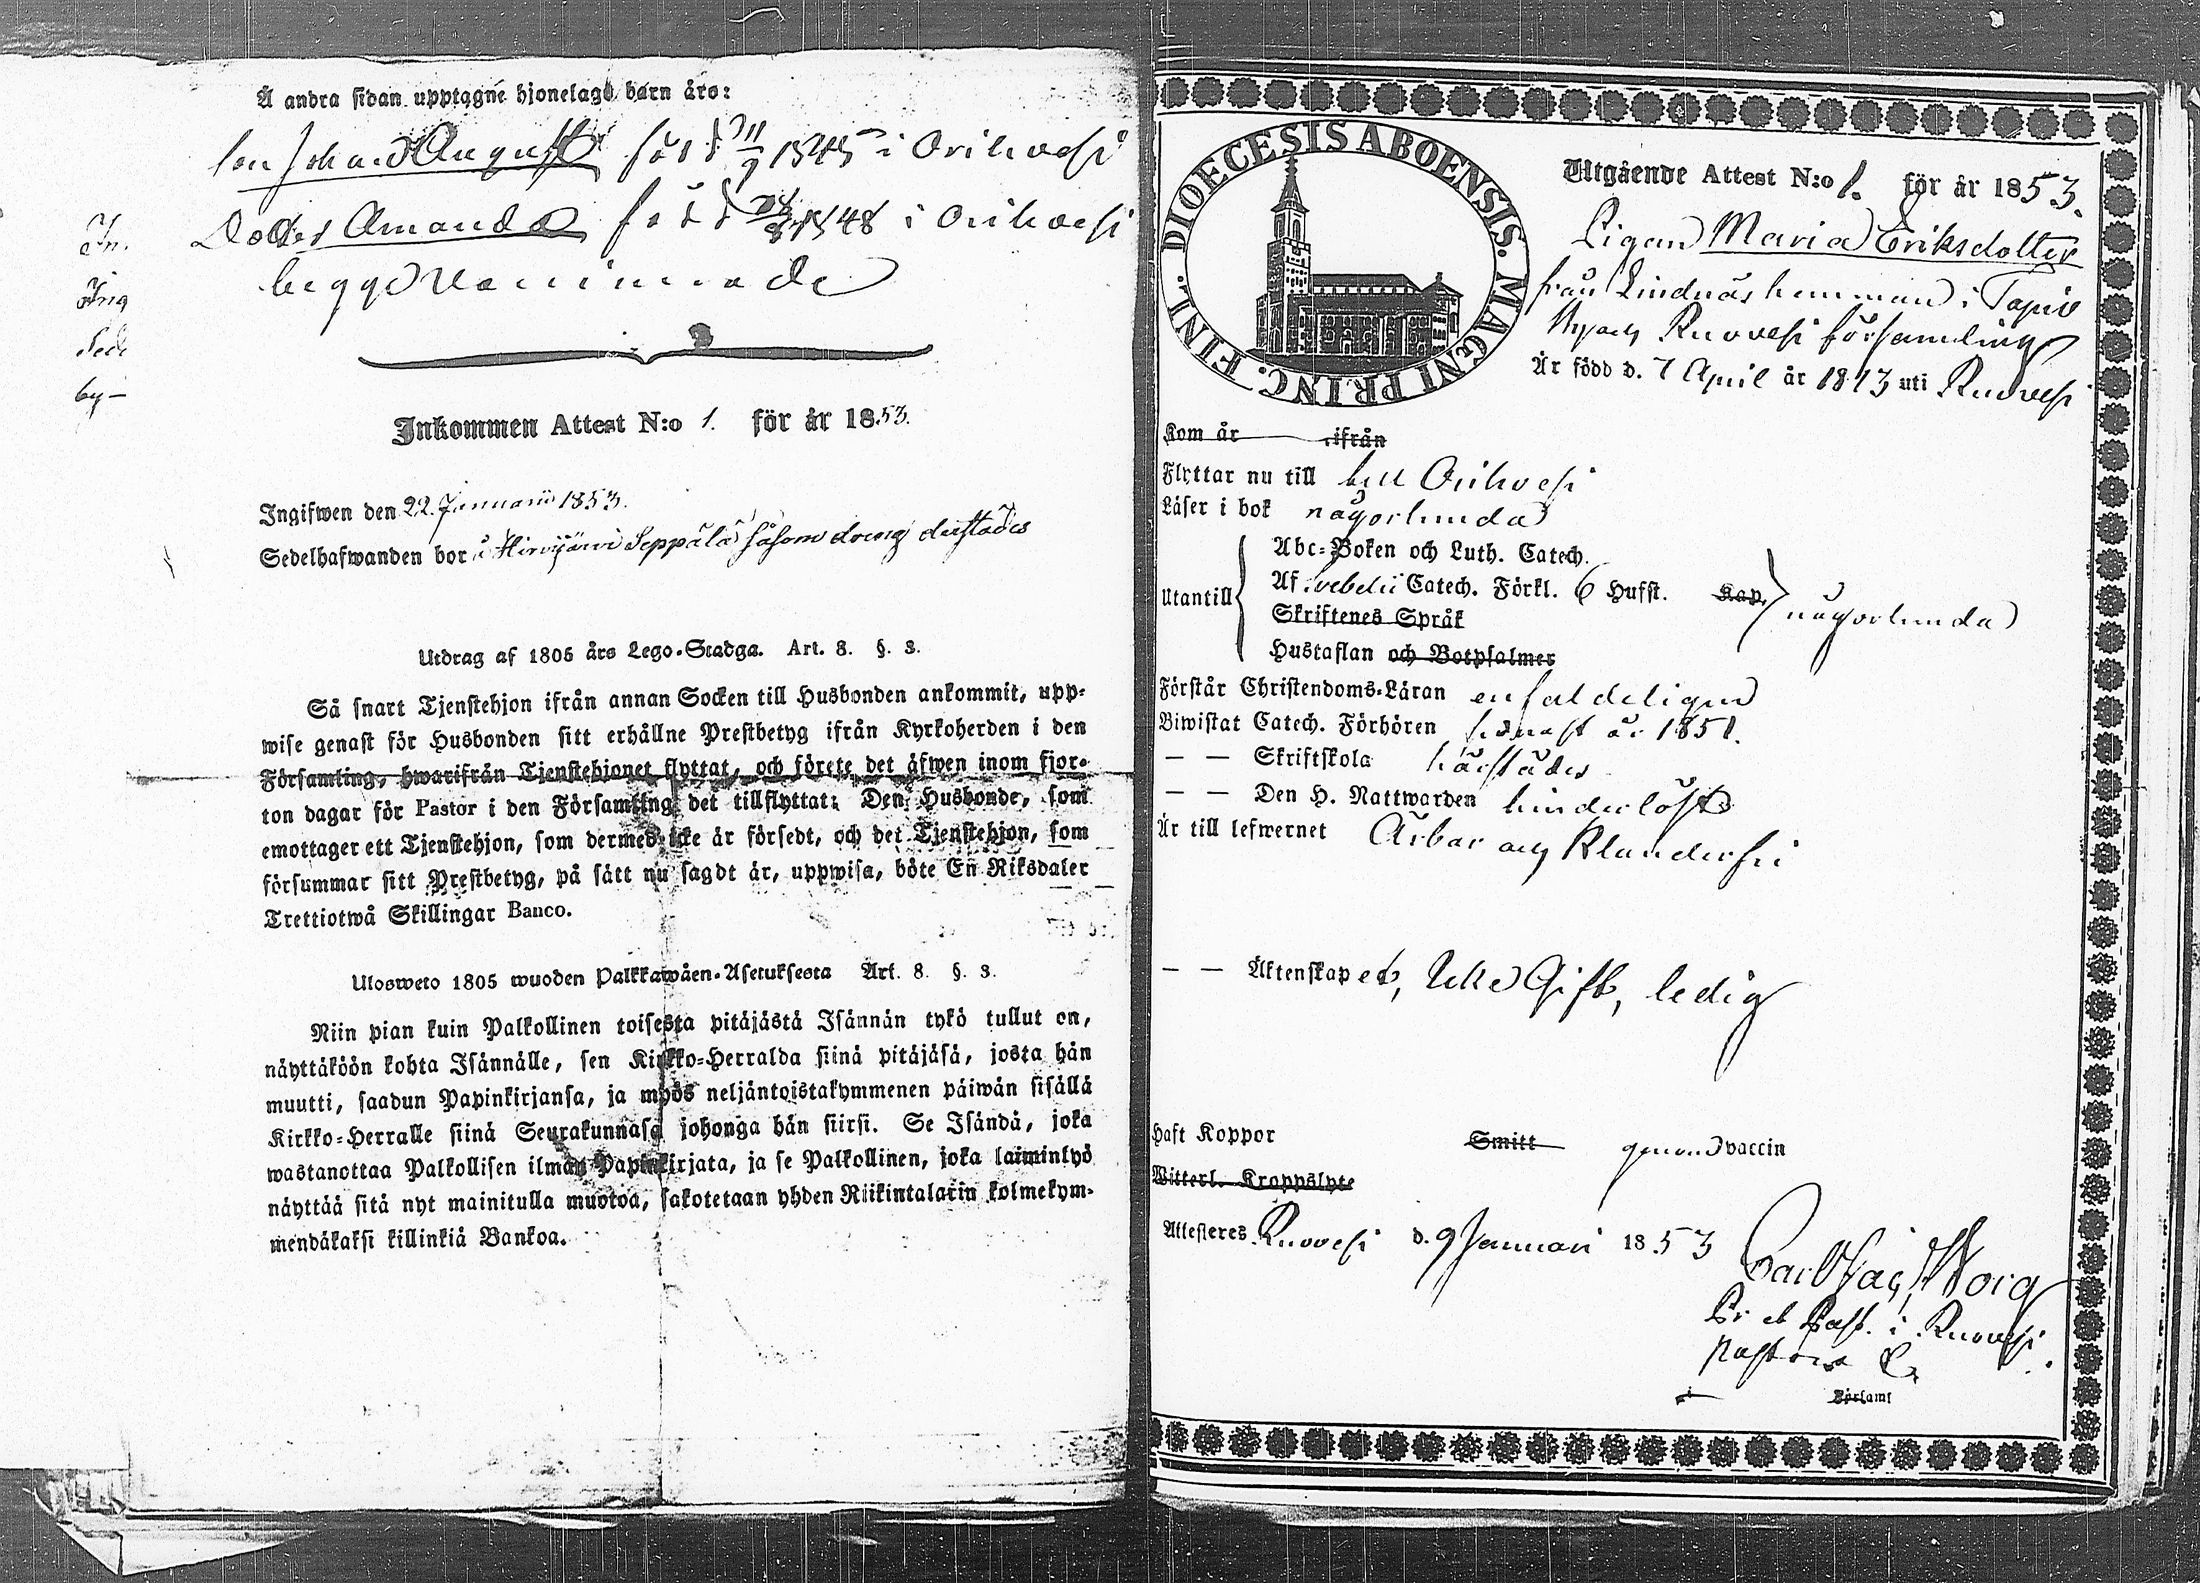 Å andra sidan upptagne hjonelags barn äro:
Son Johan August född 11/9 1845 i Orihvesi
Dotter Amanda född 24/8 1848 i Orihvesi
begge vaccinerade
In.
Ing
Sede
by-
Inkommen Attest N:o 1. för år 1853.
Ingifwen den 22 Januarii 1853.
Sedelhafwanden bor å Hirvijärvi Seppälä såsom dreng derstädes
Utdrag af 1805 års Lego-Stadga. Art. 8. §. 3.
Så snart Tjenstehjon ifrån annan Socken till Husbonden ankommit, upp-
wise genast för Husbonden sitt erhållne Prestbetyg ifrån Kyrkoherden i den
Församling, hwarifrån Tjenstehjonet flyttat, och förete det äfwen inom fjor-
ton dagar för Pastor i den Församling det tillflyttat: Den Husbonde, som
emottager ett Tjenstehjon, som dermed icke är försedt, och det Tjenstehjon, som
försummar sitt Prestbetyg, på sätt nu sagdt är, uppwisa, böte En Riksdaler
Trettiotwå Skillingar Banco.
Ulosweto 1805 wuoden Palkkawäen-Asetuksesta Art. 8. §. 3.
Niin pian kuin Palkollinen toisesta pitäjästä Isännän tykö tullut on,
näyttäköön kohta Isännälle, sen Kirkko-Herralda siinä pitäjäsä, josta hän
muutti, saadun Papinkirjansa, ja myös neljäntoistakymmenen päiwän sisällä
Kirkko-Herralle siinä Seurakunnasa johonga hän siirsi. Se Isändä, joka
wastanottaa Palkollisen ilman Papinkirjata, ja se Palkollinen, joka laiminlyö
näyttää sitä nyt mainitulla muotoa, sakotetaan yhden Riikintalarin kolmekym-
mendäkaksi killinkiä Bankoa.
DIOECESIS ABOENSIS. MAGNI PRINC. FINL.
Utgående Attest N:o 1. för år 1853.
Pigan Maria Eriksdotter
från Lindnäs hemman i Tapio
by och Ruovesi församling
Är född d. 7 April år 1813 uti Ruovesi
Kom år ifrån
Flyttar nu till till Orihvesi
Läser i bok någorlunda
Utantill
Abc-Boken och Luth. Catech.
Af Svebelii Catech. Förkl. 6 Hufst. Kap.
någorlunda
Skriftenes Språk
Hustaflan och Botpsalmer
Förstår Christendoms-Läran enfaldeligen
Biwistat Catech. Förhören senast år 1851.
— — Skriftskola härstädes
— — Den H. Nattwarden hinderlöst
Är till lefwernet Ärbar och Klanderfri
— — Äktenskapet, Icke Gift, ledig
Haft Koppor Smitt genom vaccin
Witterl. Kroppslyte
Attesteres Ruovesi d. 9 Januari 1853
Carl Haq. Borg
Pr et Past. i Ruovesi
i Församl